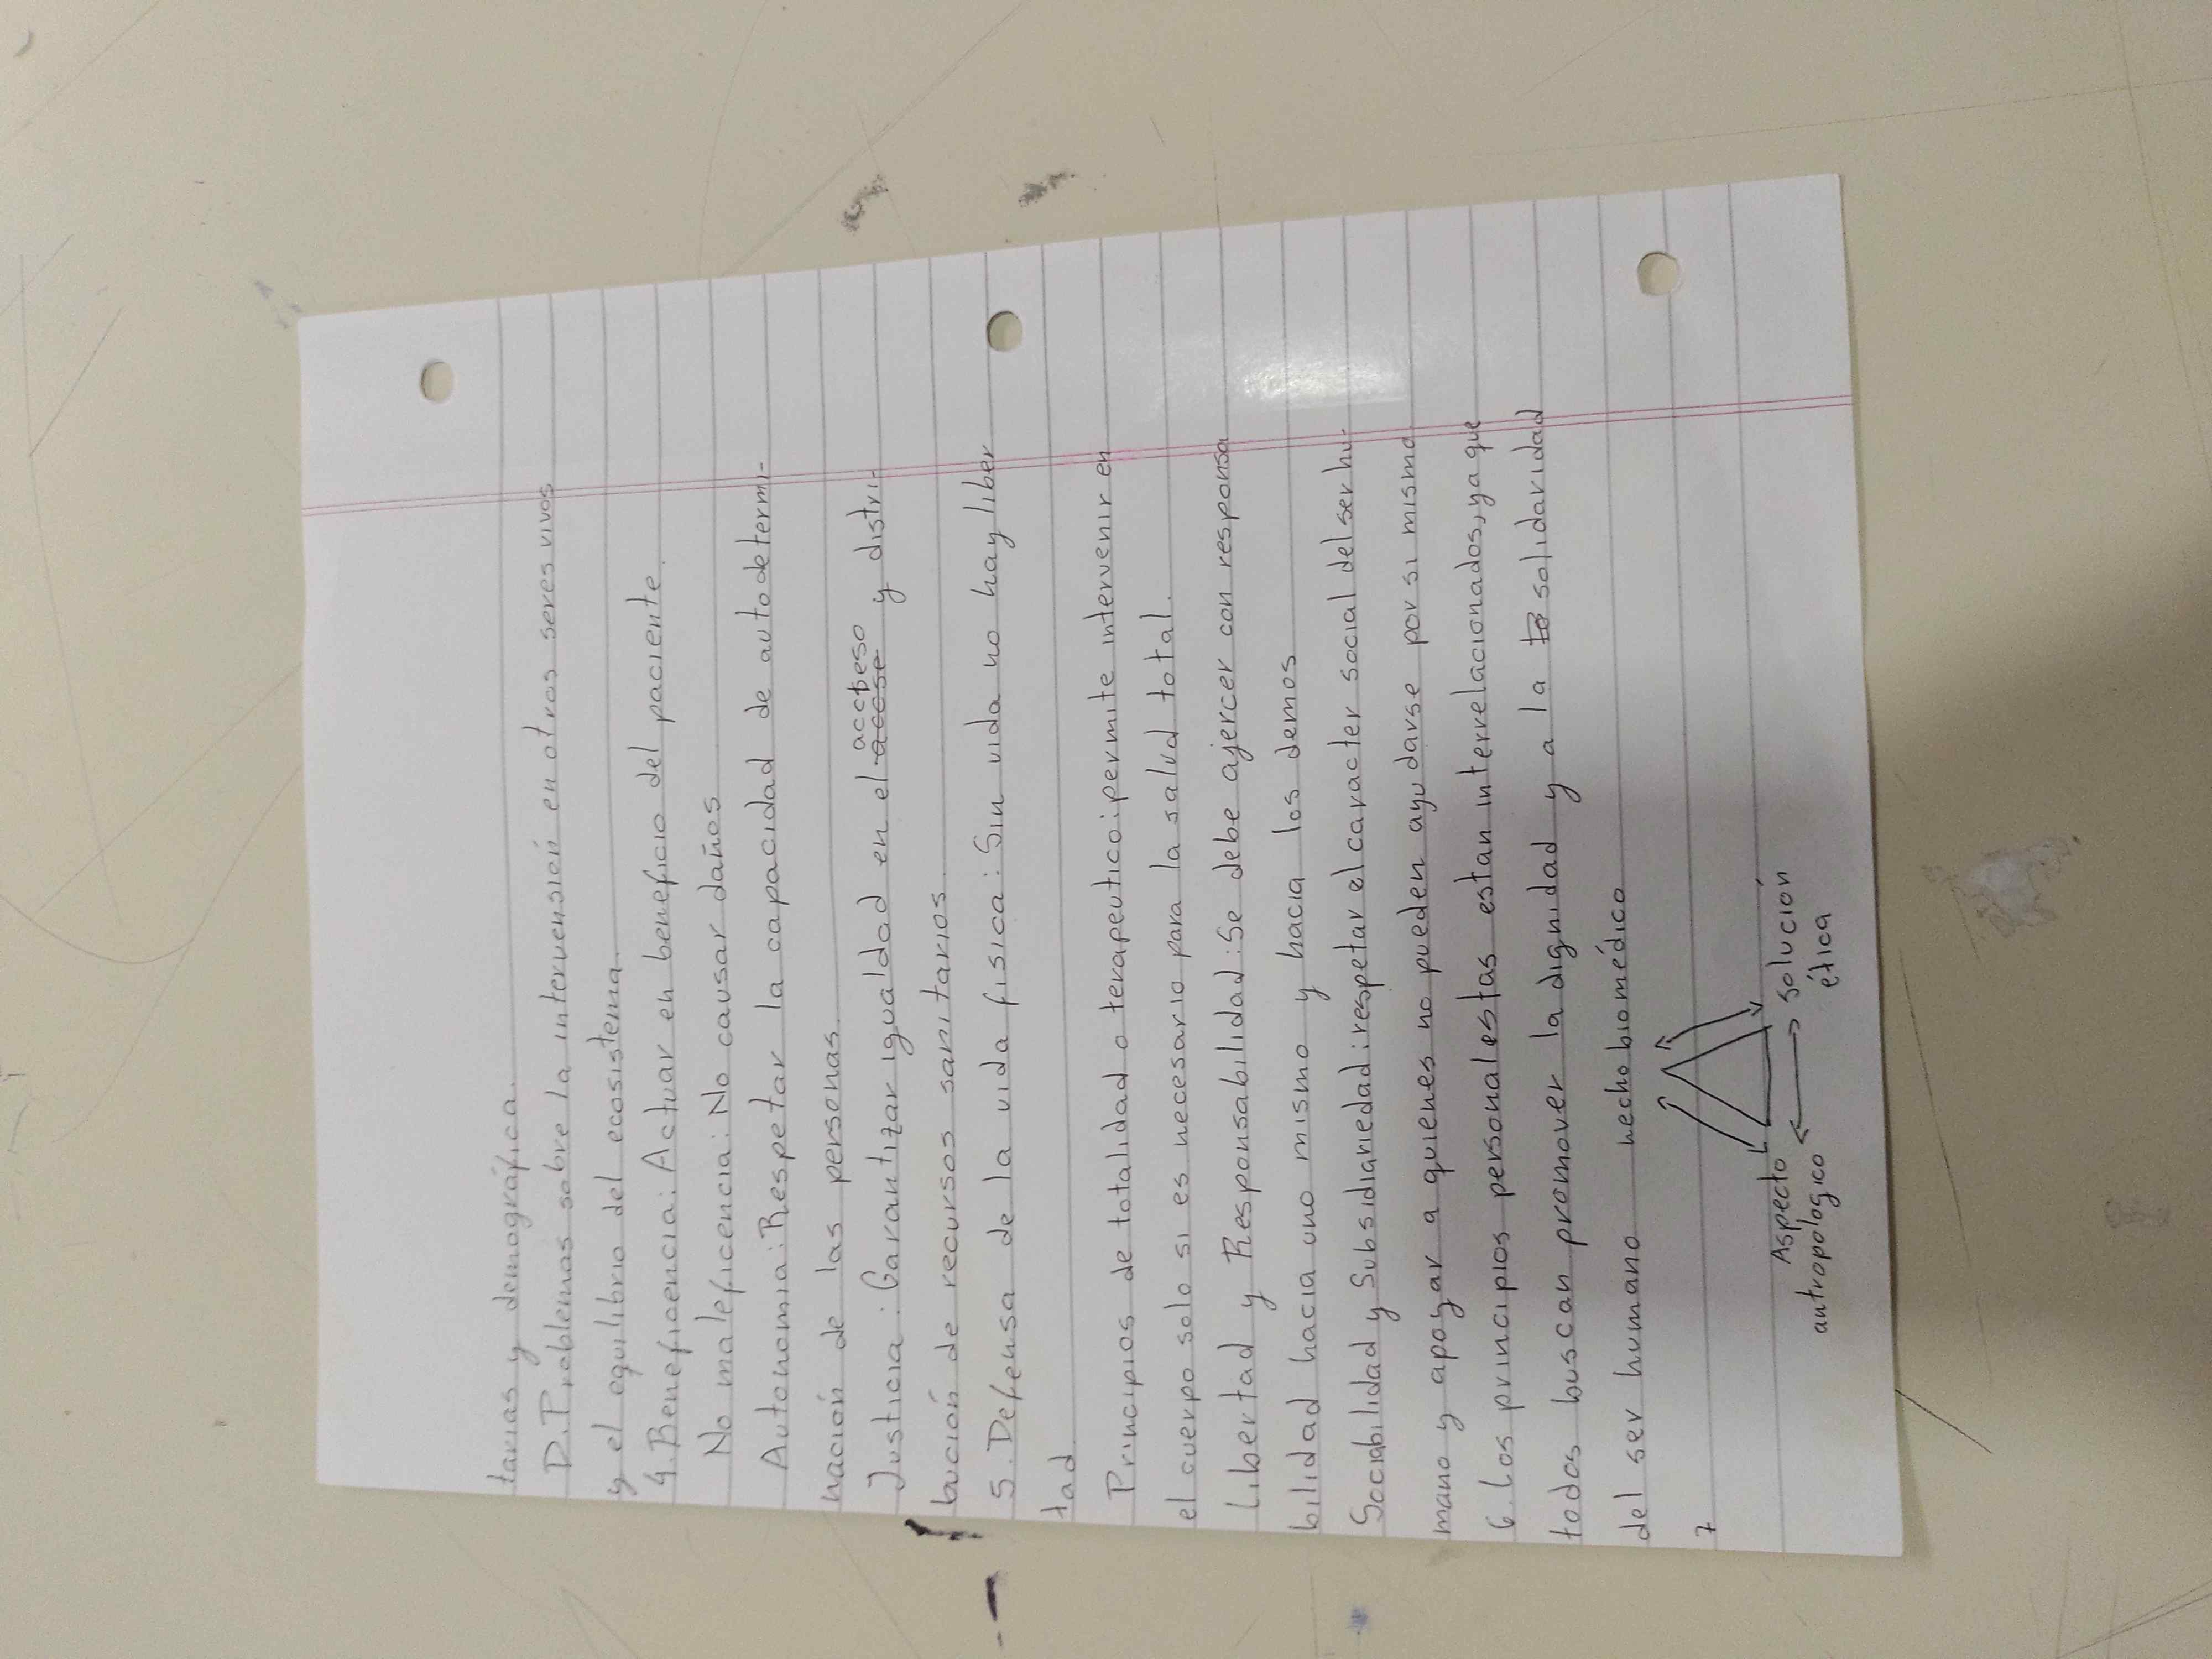 tarias y demográfica.
D. Problemas sobre la intervensión en otros seres vivos
y el equilibrio del ecosistema.
4. Beneficencia: Actuar en beneficio del paciente.
No maleficencia: No causar daños
Autonomia: Respetar la capacidad de autodetermi-
nación de las personas.
Justicia: Garantizar igualdad en el accese acceso y distri-
bución de recursos sanitarios.
5. Defensa de la vida fisica: Sin vida no hay liber
tad
Principios de totalidad o terapeutico: permite intervenir en
el cuerpo solo si es necesario para la salud total.
Libertad y Responsabilidad: Se debe ajercer con responsa
bilidad hacia uno mismo y hacia los demos
Sociabilidad y Subsidianiedad: respetar el caracter social del ser hu-
mano y apoyar a quienes no pueden ayudarse por si mismo.
6. Los principios personalestas estan interrelacionados, ya que
todos buscan promover la dignidad y a la to solidaridad
del ser humano
7
hecho biomédico
Aspecto
antropologico
solución
ética